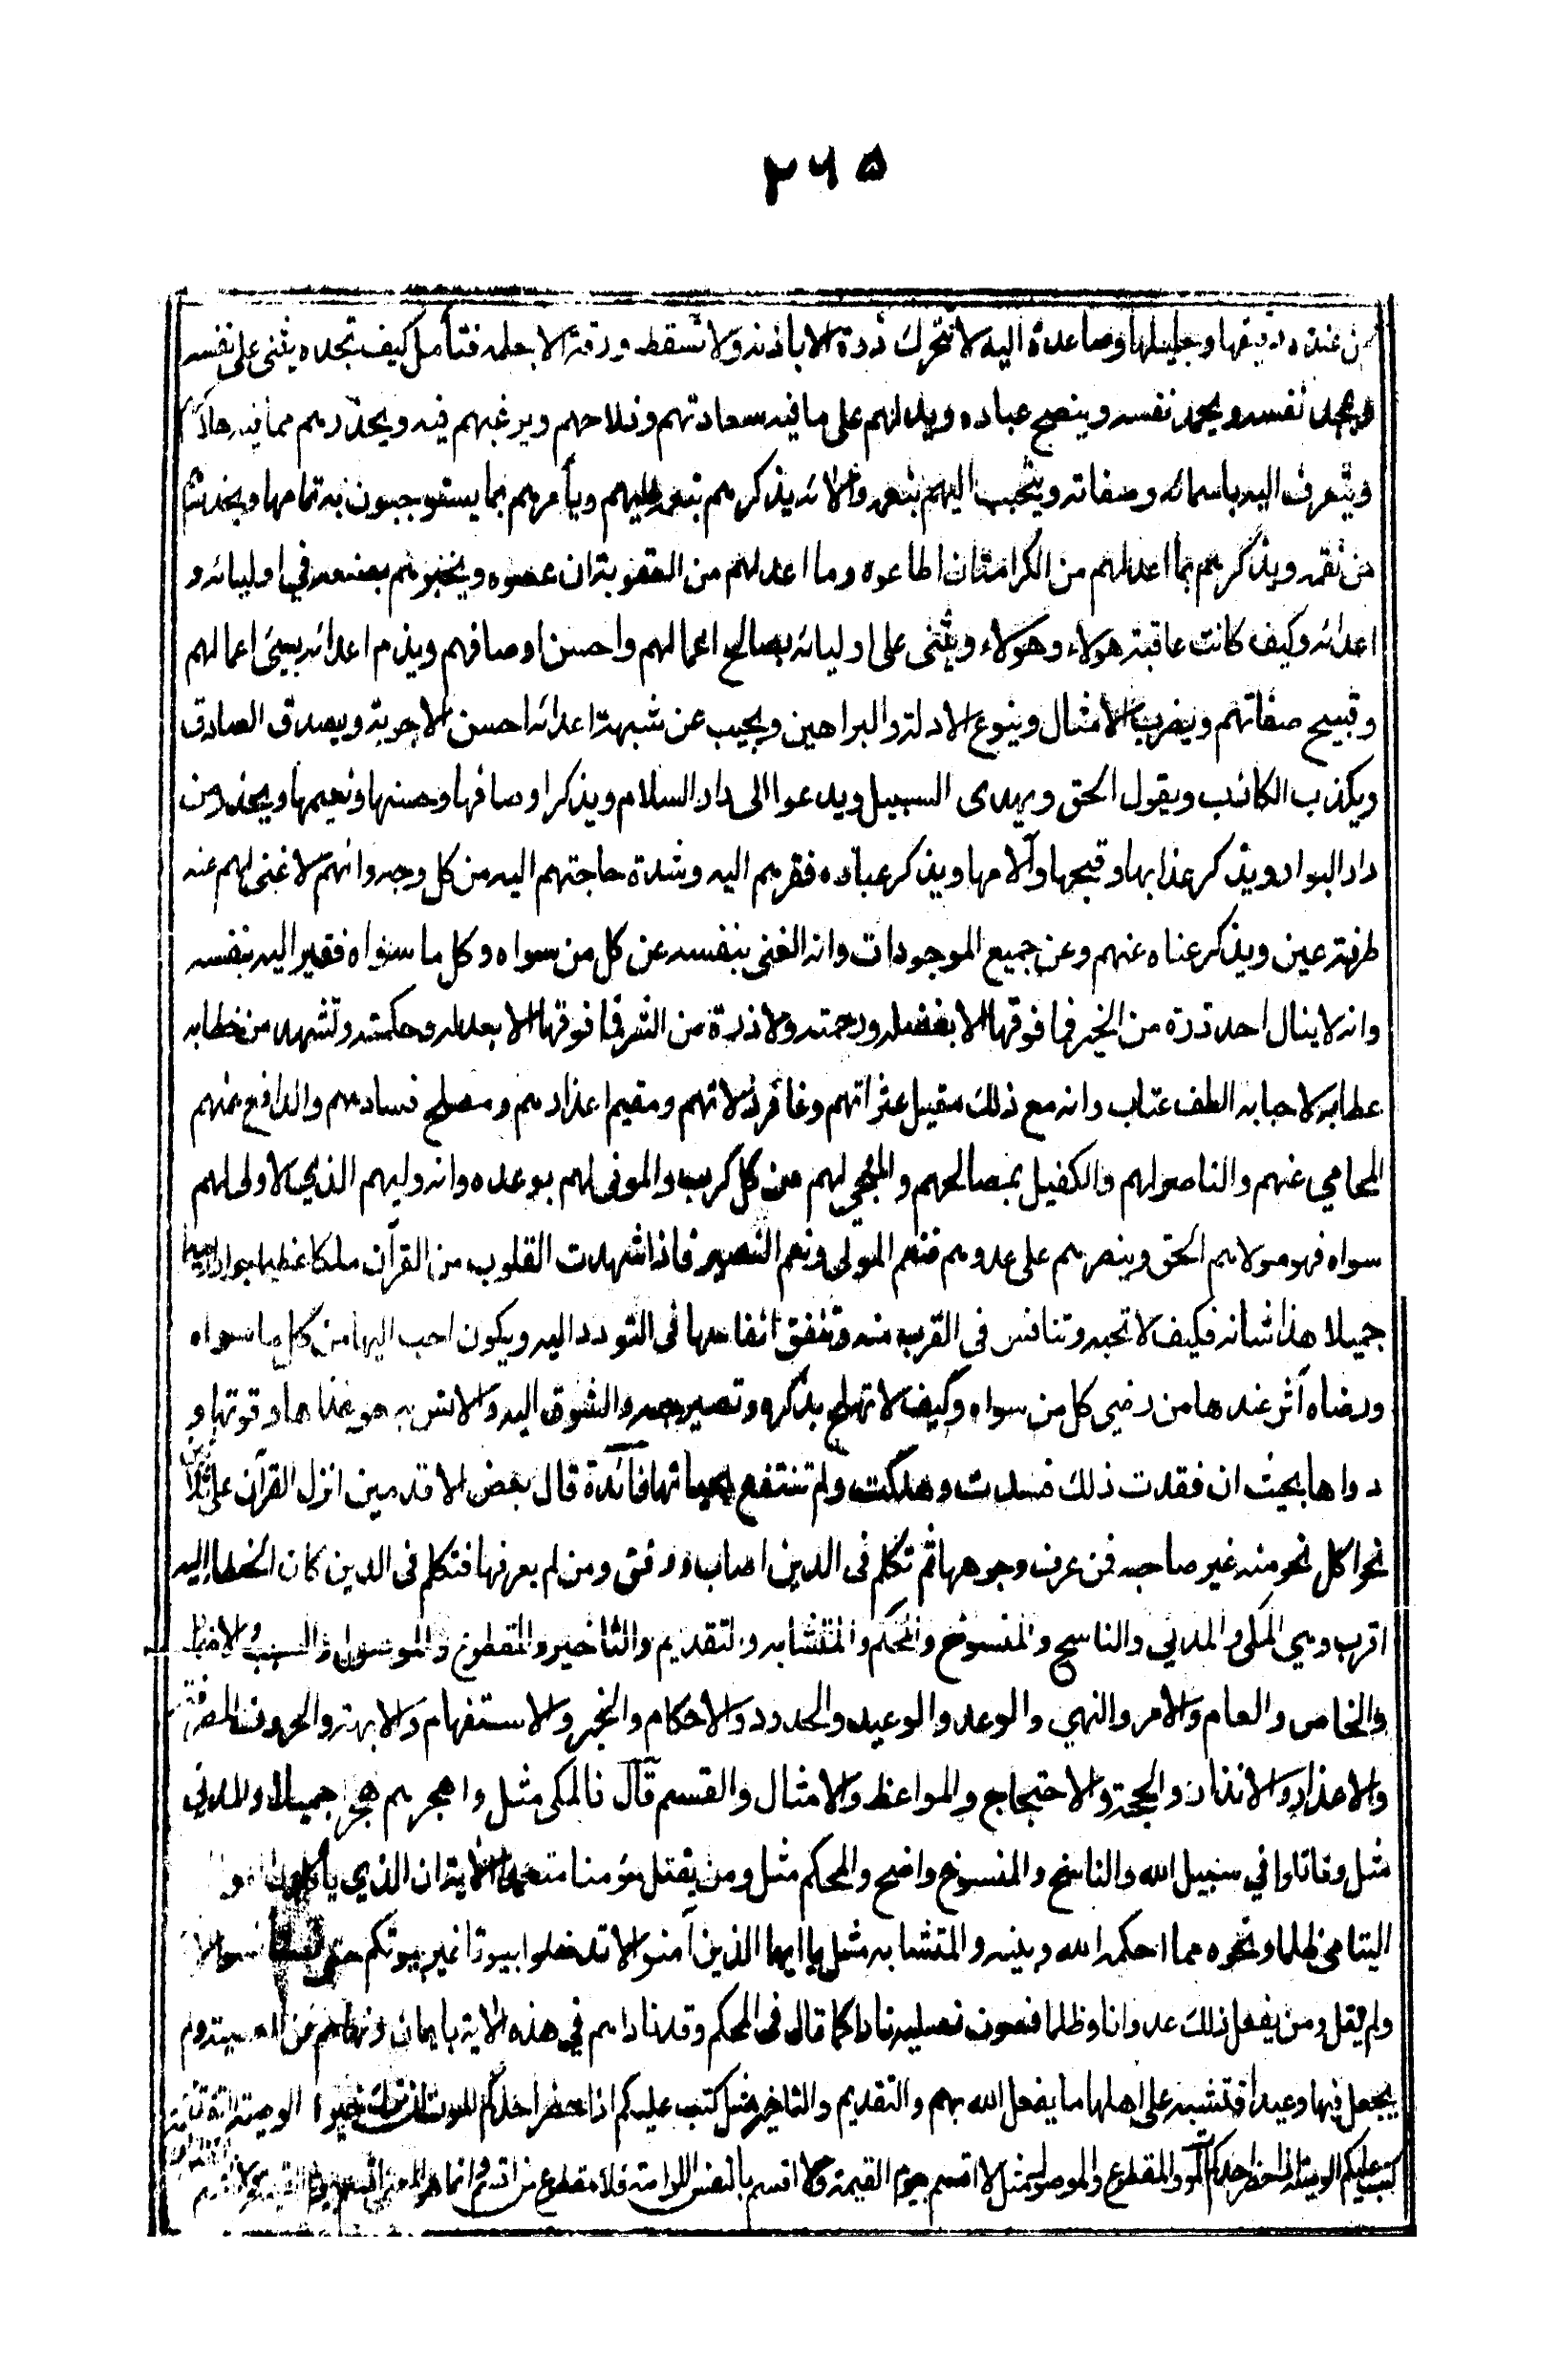 ٢٦٥
من عنده دقيقها وجليلها وصاعدة اليه لا تتحرك ذرة الا باذنه ولا تسقط ورقة الا بعلمه فتأمل كيف تجده يثني على نفسه
ويمجد نفسه ويحمد نفسه وينصح عباده ويدلهم على ما فيه سعادتهم وفلاحهم ويرغبهم فيه ويحذرهم مما فيه هلاكهم
ويتعرف اليه باسمائه وصفاته ويتحبب اليهم بنعمه والائه يذكرهم بنعمه عليهم ويأمرهم بما يستوجبون به تمامها ويحذرهم
من نقمه ويذكرهم بما اعد لهم من الكرامة ان اطاعوه وما اعد لهم من العقوبة ان عصوه ويخبرهم بصنعه في اوليائه و
اعدائه وكيف كانت عاقبة هولاء وهولاء ويثنى على اوليائه بصالح اعمالهم واحسن اوصافهم ويذم اعدائه بسيئ اعمالهم
وقبيح صفاتهم ويضرب الامثال وينوع الادلة والبراهين ويجيب عن شبهة اعدائه احسن الاجوبة ويصدق الصادق
ويكذب الكاذب ويقول الحق ويهدى السبيل ويدعوا الى دار السلام ويذكر اوصافها وحسنها ونعيمها ويحذر من
دار البوار ويذكر عذابها وقبحها وآلامها ويذكر عباده فقرهم اليه وشدة حاجتهم اليه من كل وجه وانهم لا غنى لهم عنه
طرفة عين ويذكر غناه عنهم وعن جميع الموجودات وانه الغنى بنفسه عن كل من سواه وكل ما سواه فقير اليه بنفسه
وانه لا ينال احد ذرة من الخير فما فوقها الا بفضله ورحمته ولا ذرة من الشر فما فوقها الا بعدله وحكمته وتشهد من خطابه
عطابه لاحبابه الطف عتاب وانه مع ذلك مقيل عثراتهم وغافر زلاتهم ومقيم اعذارهم ومصلح فسادهم والدافع عنهم
المحامي عنهم والناصر لهم والكفيل بمصالحهم والمنجي لهم من كل كرب والموفى لهم بوعده وانه وليهم الذي لا ولى لهم
سواه فهو مولاهم الحق وينصرهم على عدوهم فنعم المولى ونعم النصير فاذا شهدت القلوب من القرآن ملكا عظيما جوادا رحيما
جميلا هذا شانه فكيف لا تحبه وتنافس في القرب منه وتنفق انفاسها في التودد اليه ويكون احب اليها من كل ما سواه
ورضاه آثر عندها من رضى كل من سواه وكيف لا تلهج بذكره وتصير حبه والشوق اليه والانس به هو غذاها وقوتها و
دواها بحيث ان فقدت ذلك فسدت وهلكت ولم تنتفع بحياتها فائدة قال بعض الاقدمين انزل القرآن على ثلاثين
نحوا كل نحو منه غير صاحبه فمن عرف وجوهها ثم تكلم في الدين اصاب ووفق ومن لم يعرفها فتكلم في الدين كان الخطا اليه
اقرب وهي المكي والمدني والناسخ والمنسوخ والمحكم والمتشابه والتقديم والتاخير والمقطوع والموصول والسبب والاضمار
والخاص والعام والامر والنهي والوعد والوعيد والحدود والاحكام والخبر والاستفهام والابهة والحروف المصرفة
والاعذار والانذار والحجة والاحتجاج والمواعظ والامثال والقسم قال فالمكي مثل واهجرهم هجرا جميلا والمدني
مثل وقاتلوا في سبيل الله والناسخ والمنسوخ واضح والمحكم مثل ومن يقتل مؤمنا متعمدا الاية ان الذي يأكلون اموال
اليتامى ظلما ونحوه مما احكمه الله وبينه والمتشابه مثل يا ايها الذين آمنوا لا تدخلوا بيوتا غير بيوتكم حتى تستأنسوا الاية
ولم يقل ومن يفعل ذلك عدوانا وظلما فسوف نصليه نارا كما قال في المحكم وقد ناداهم في هذه الاية بايمان ونهاهم عن المعصية ولم
يجعل فيها وعيدا فتشبه على اهلها ما يفعل الله بهم والتقديم والتاخير مثل كتب عليكم اذا حضر احدكم الموت ان ترك خيرا الوصية
كتب عليكم الوصية اذا حضر احدكم الموت والمقطوع والموصول مثل لا اقسم بيوم القيمة ولا اقسم بالنفس اللوامة فلا مقطوع من اقسم وانما هو